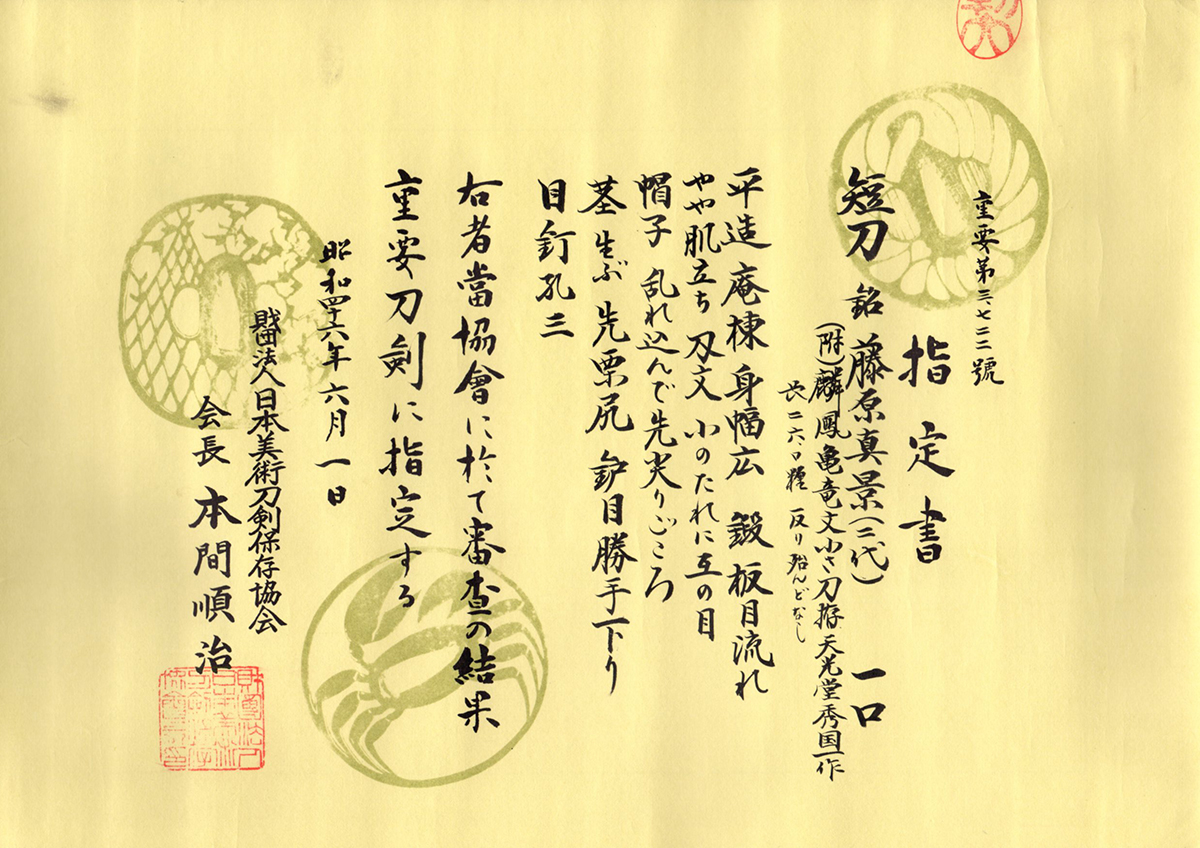 重要第三、七二二號
指定書
短刀 銘 藤原真景(二代) 一口
(附)麟鳳亀竜文小さ刀拵 天光堂秀国作
长二六・〇糎 反り殆んどなし
平造 庵棟 身幅広 鍛 板目流れ
やや肌立ち 刃文 小のたれに互の目
帽子 乱れ込んで先尖りごころ
茎 生ぶ 先栗尻 鈩目勝手下り
目釘孔三
右者當協會に於て審査の結果
重要刀剣に指定する
昭和四十六年六月一日
財団法人日本美術刀剣保存協会
会長 本間順治